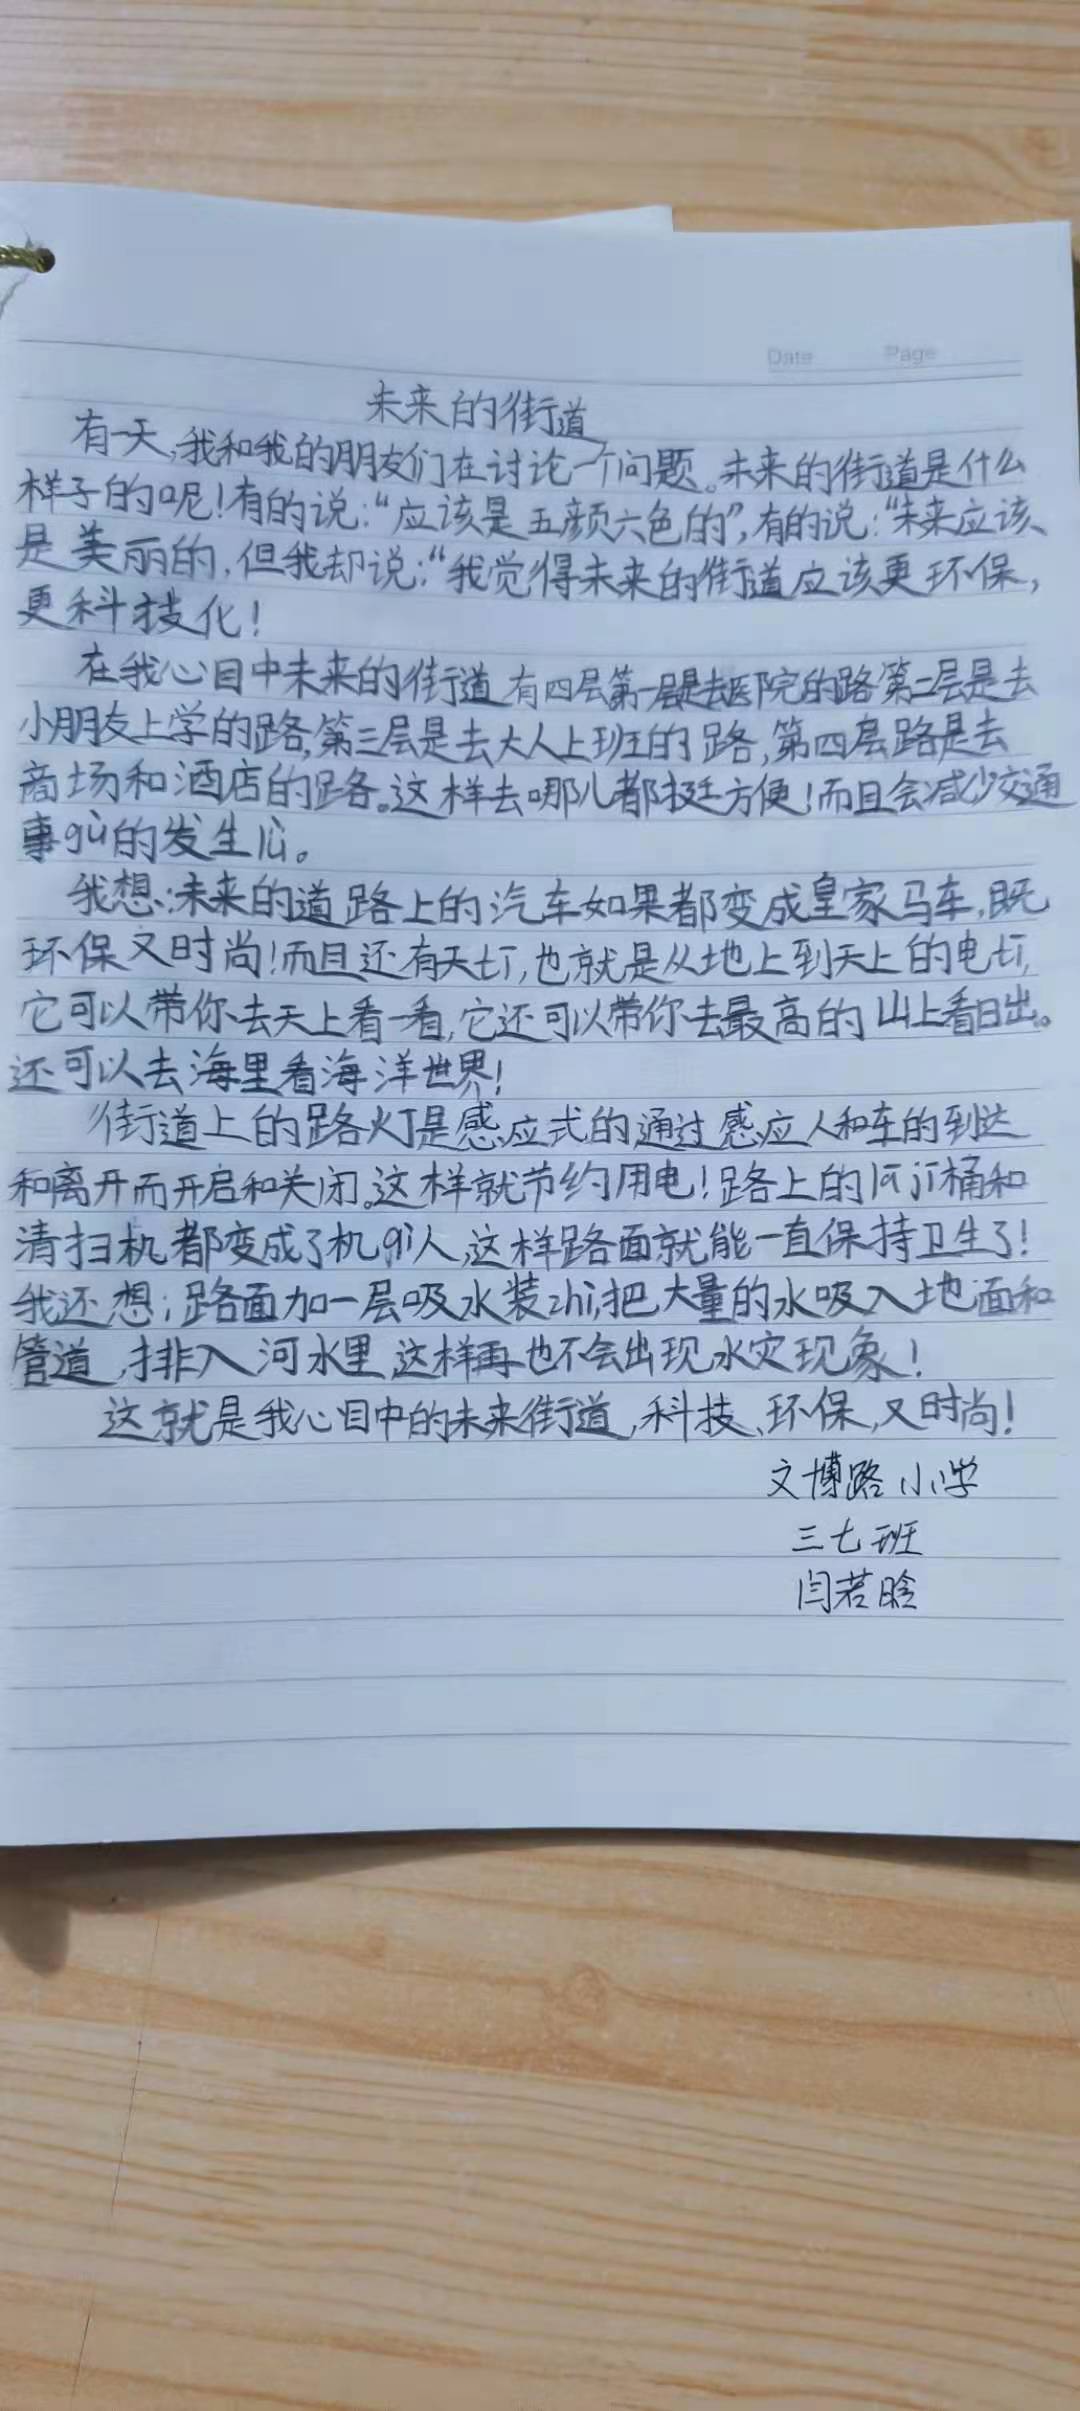 Date Page
未来的街道
有一天,我和我的朋友们在讨论一个问题。未来的街道是什么
样子的呢!有的说:“应该是五颜六色的”,有的说:“未来应该
是美丽的,但我却说:“我觉得未来的街道应该更环保,
更科技化!
在我心目中未来的街道有四层第一层是去医院的路第二层是去
小朋友上学的路,第三层是去大人上班的路,第四层路是去
商场和酒店的路。这样去哪儿都挺方便!而且会减少交通
事gù的发生lǜ。
我想:未来的道路上的汽车如果都变成皇家马车,既
环保又时尚!而且还有天tī,也就是从地上到天上的电tī,
它可以带你去天上看一看,它还可以带你去最高的山上看日出。
还可以去海里看海洋世界!
街道上的路灯是感应式的,通过感应人和车的到达
和离开而开启和关闭。这样就节约用电!路上的lājī桶和
清扫机都变成了机qì人,这样路面就能一直保持卫生了!
我还想;路面加一层吸水装zhì,把大量的水吸入地面和
管道,排入河水里,这样再也不会出现水灾现象!
这就是我心目中的未来街道,科技、环保,又时尚!
文博路小学
三七班
闫若晗